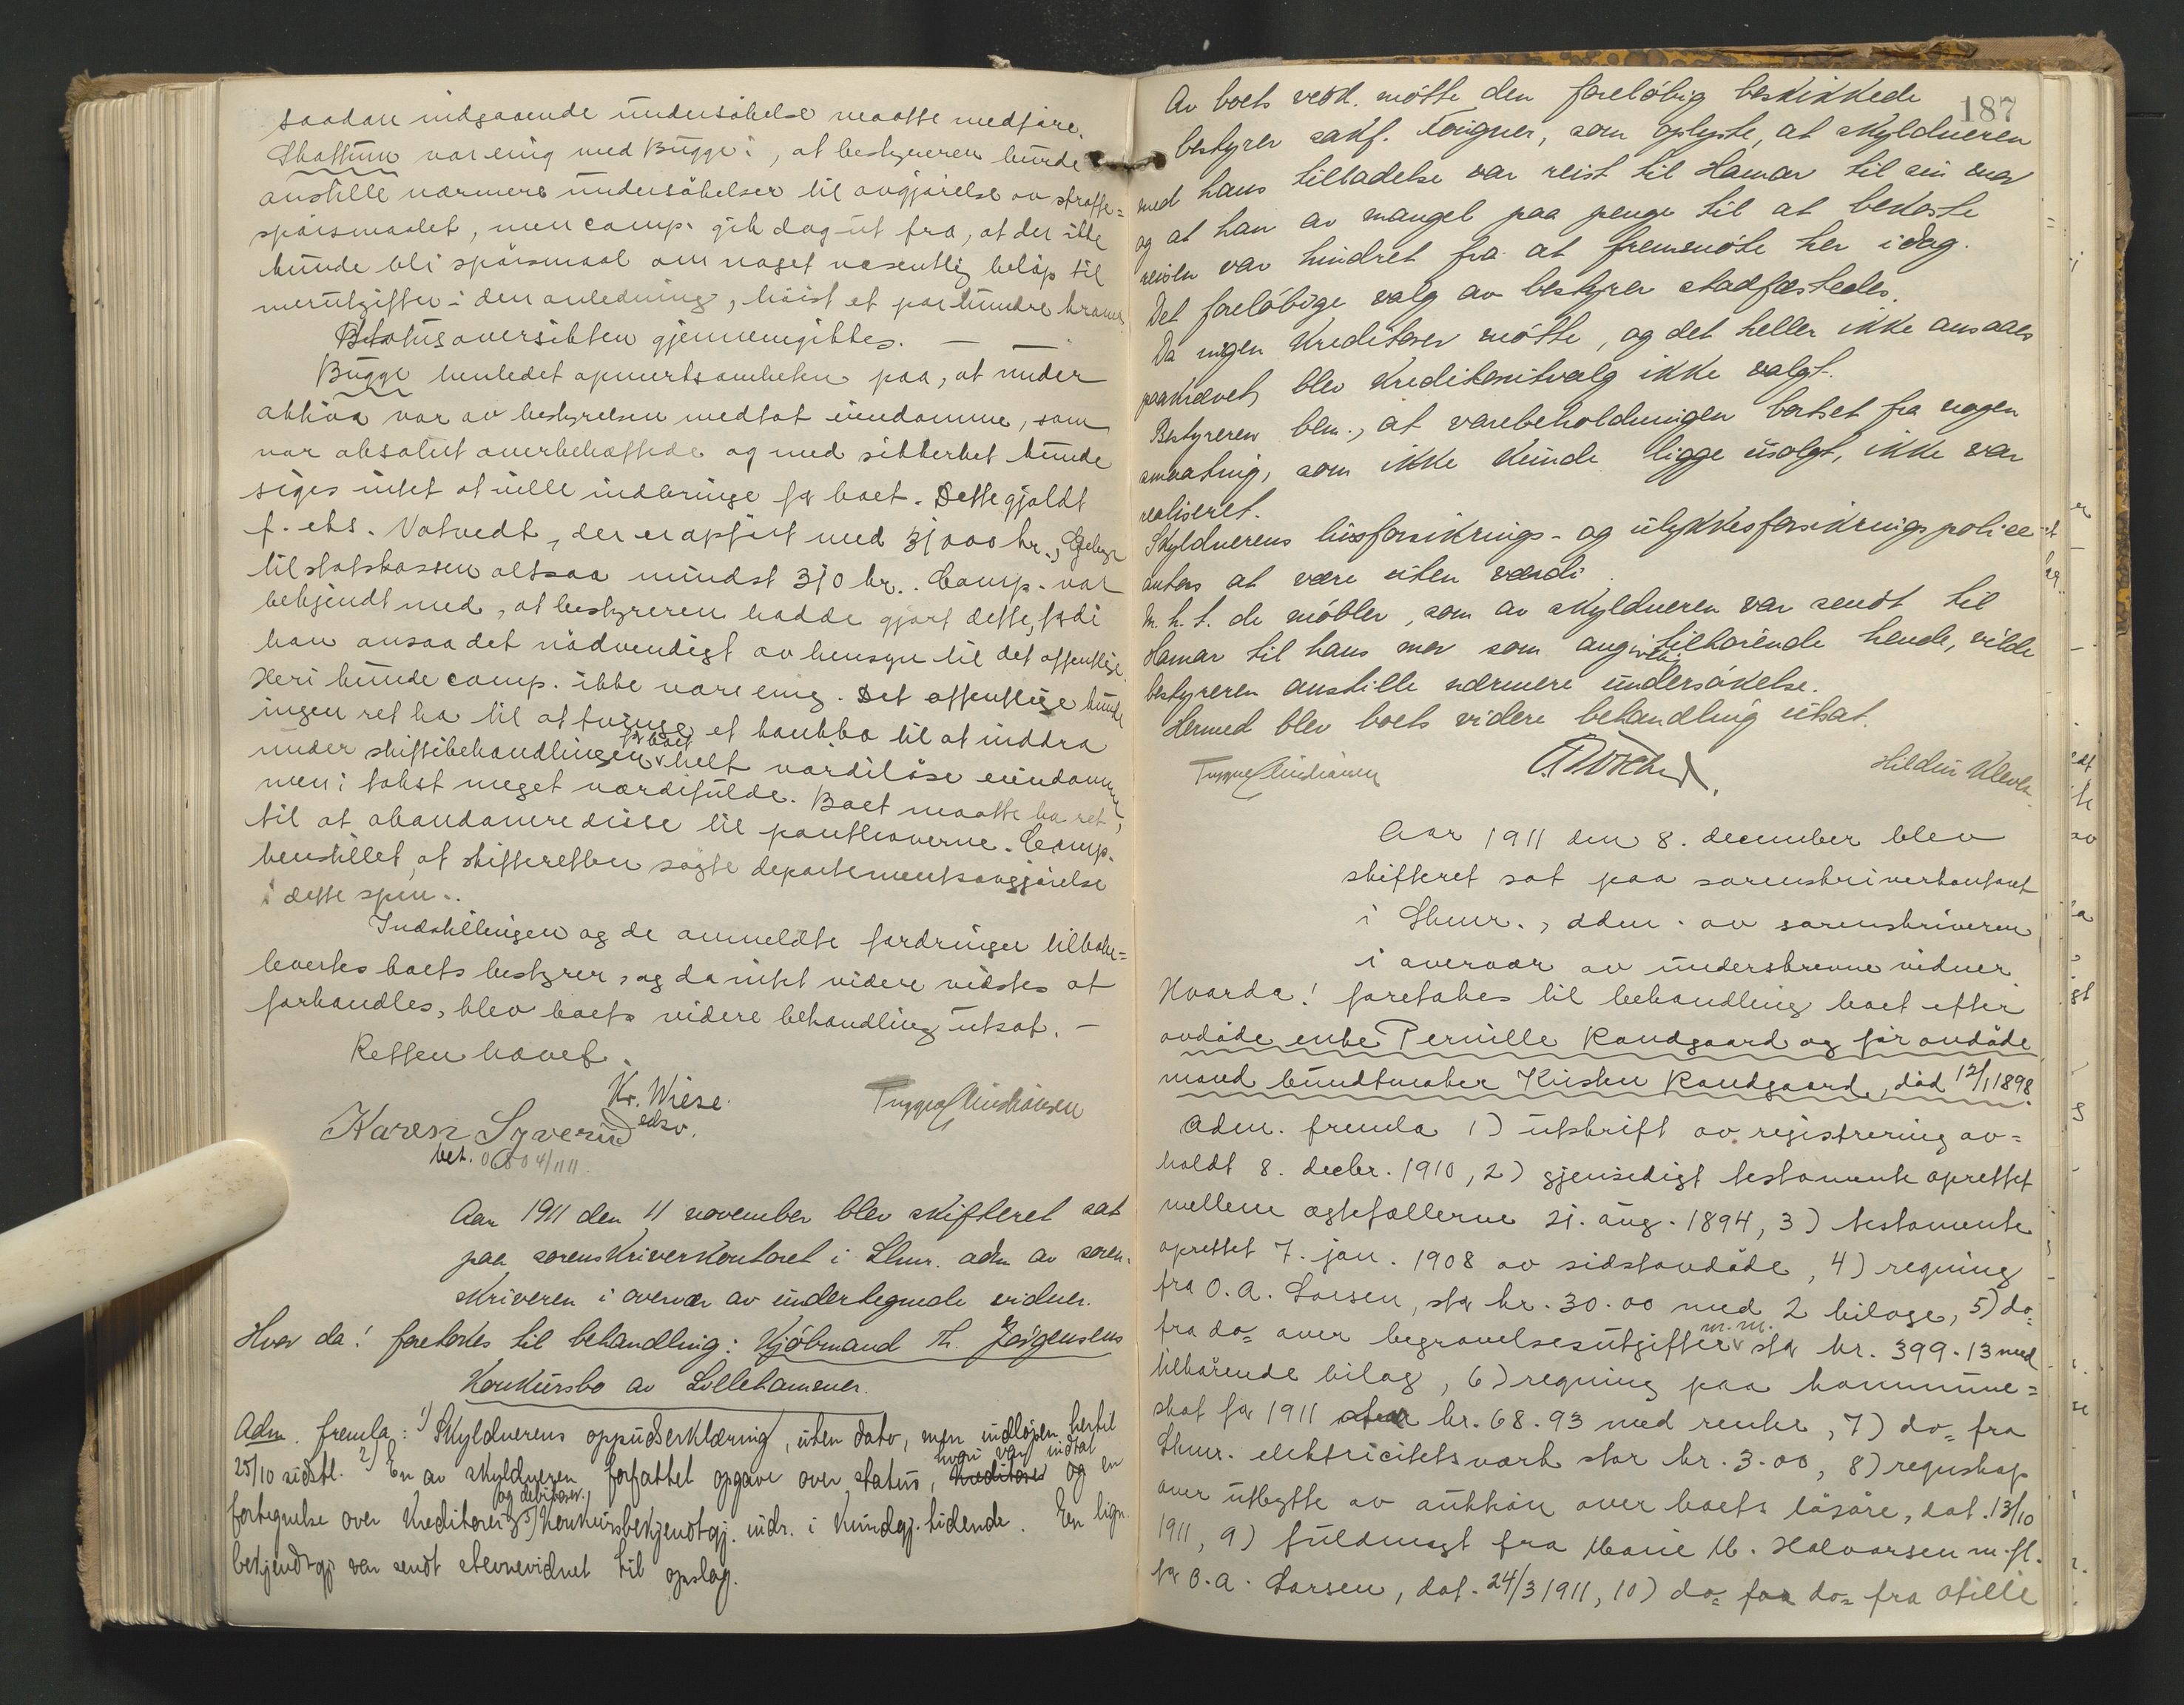 saadan indgaaende undersökelse maatte medföre.
Skattum var enig med Bugge i, at bestyreren burde
anstille nærmere undersökelser til avgjörelse av straffe=
spörsmaalet, men comp. gik dog ut fra, at der ikke
kunde bli spörsmaal om noget væsentlig belöp til
merutgifter i den anledning, höist et par hundre kroner
Statusoversikten gjennemgikkes. —
Bugge henledet opmerksomheten paa, at under
aktiva var av bestyrelsen medtat eiendomme, som
var absolut overbehæftede og med sikkerhet kunde
siges intet at ville indbringe for boet. Dette gjaldt
f. eks. Votvedt, der er opfört med 31000 kr., Gebyr
til statskassen altsaa mindst 310 kr.. Comp. var
bekjendt med, at bestyreren hadde gjort dette, fordi
han ansaa det nödvendigt av hensyn til det offentlige.
Heri kunde comp. ikke være enig. Det offentlige kunde
ingen ret ha til at tvinge et konkbo til at inddra
under skiftebehandlingen for boet helt værdilöse eiendomme,
men i takst meget værdifulde. Boet maatte ha ret
til at abandonere disse til panthaverne. Comp.
henstillet, at skifteretten sögte departementsavgjörelse
i dette spm..
Indstillingen og de anmeldte fordringer tilbake=
levertes boets bestyrer, og da intet videre vidstes at
forhandles, blev boets videre behandling utsat. —
Retten hævet.
Kr. Wiese
edsv.
Trygve Christiansen
Karen Syverud
bet. 4/11 11.
Aar 1911 den 11 november blev skifteret sat
paa sorenskriverkontoret i Lhmr. adm av soren-
skriveren i overvær av undertegnede vidner.
Hvor da! foretokes til behandling: Kjöbmand Th. Jörgensens
Konkursbo av Lillehammer.
Adm. fremla: 1) Skyldnerens oppudserklæring, uten dato, men indlöpen hertil
25/10 sidstl. 2) En av skyldneren forfattet opgave over status, kreditorer hvori var indtat og en
fortegnelse over kreditorer og debitorer. 3) Konkursbekjendtgj. indr. i Kundgj. tidende. En lign.
bekjendtgj. var sendt stevnevidnet til opslag.
187
Av boets vedk. mötte den foreløbig beskikkede
bestyrer sakf. Fougner, som oplyste, at skyldneren
med hans tilladelse var reist til Hamar til sin mor
og at han av mangel paa penge til at bekoste
reisen var hindret fra at fremmöte her idag.
Det foreløbige valg av bestyrer stadfæstedes.
Da ingen kreditorer mötte, og det heller ikke ansaaes
paakrævet, blev kreditoritvalg ikke valgt.
Bestyreren bem., at varebeholdningen bortset fra nogen
smaating, som ikke kunde ligge usolgt, ikke var
realiseret.
Skyldnerens livsforsikrings- og ulykkesforsikringspolise
antas at være uten værdi.
M. h. t. de möbler, som av skyldneren var sendt til
Hamar til hans mor som angivelig tilhörende hende, vilde
bestyreren anstille nærmere undersökelse.
Hermed blev boets videre behandling utsat.
Trygve Christiansen
Hildur Kleven
Aar 1911 den 8. december blev
skifteret sat paa sorenskriverkontoret
i Lhmr., adm. av sorenskriveren
i overvær av underskrevne vidner
Hvorda! foretokes til behandling boet efter
avdöde enke Pernille Randgaard og för avdöde
mand bundtmaker Kristen Randgaard, död 12/1 1898.
Adm. fremla 1) utskrift av registrering av=
holdt 8. decbr. 1910, 2) gjensidigt testamente oprettet
mellem ægtefællerne 21. aug. 1894, 3) testamente
oprettet 7. jan. 1908 av sidstavdöde, 4) regning
fra O. A. Larsen, stor kr. 30.00 med 2 bilage, 5) do=
fra do= over begravelsesutgifter m.m. stor kr. 399.13 med
tilhörende bilag, 6) regning paa kommune=
skat for 1911 stor kr. 68.93 med renter, 7) do= fra
Lhmr. elektricitetsværk stor kr. 3.00, 8) regnskap
over utbytte av auktion over boets lösöre, dat. 13/10
1911, 9) fuldmagt fra Marie M. Halvorsen m. fl.
for O. A. Larsen, dat. 24/3 1911, 10) do= for do= fra Otilie